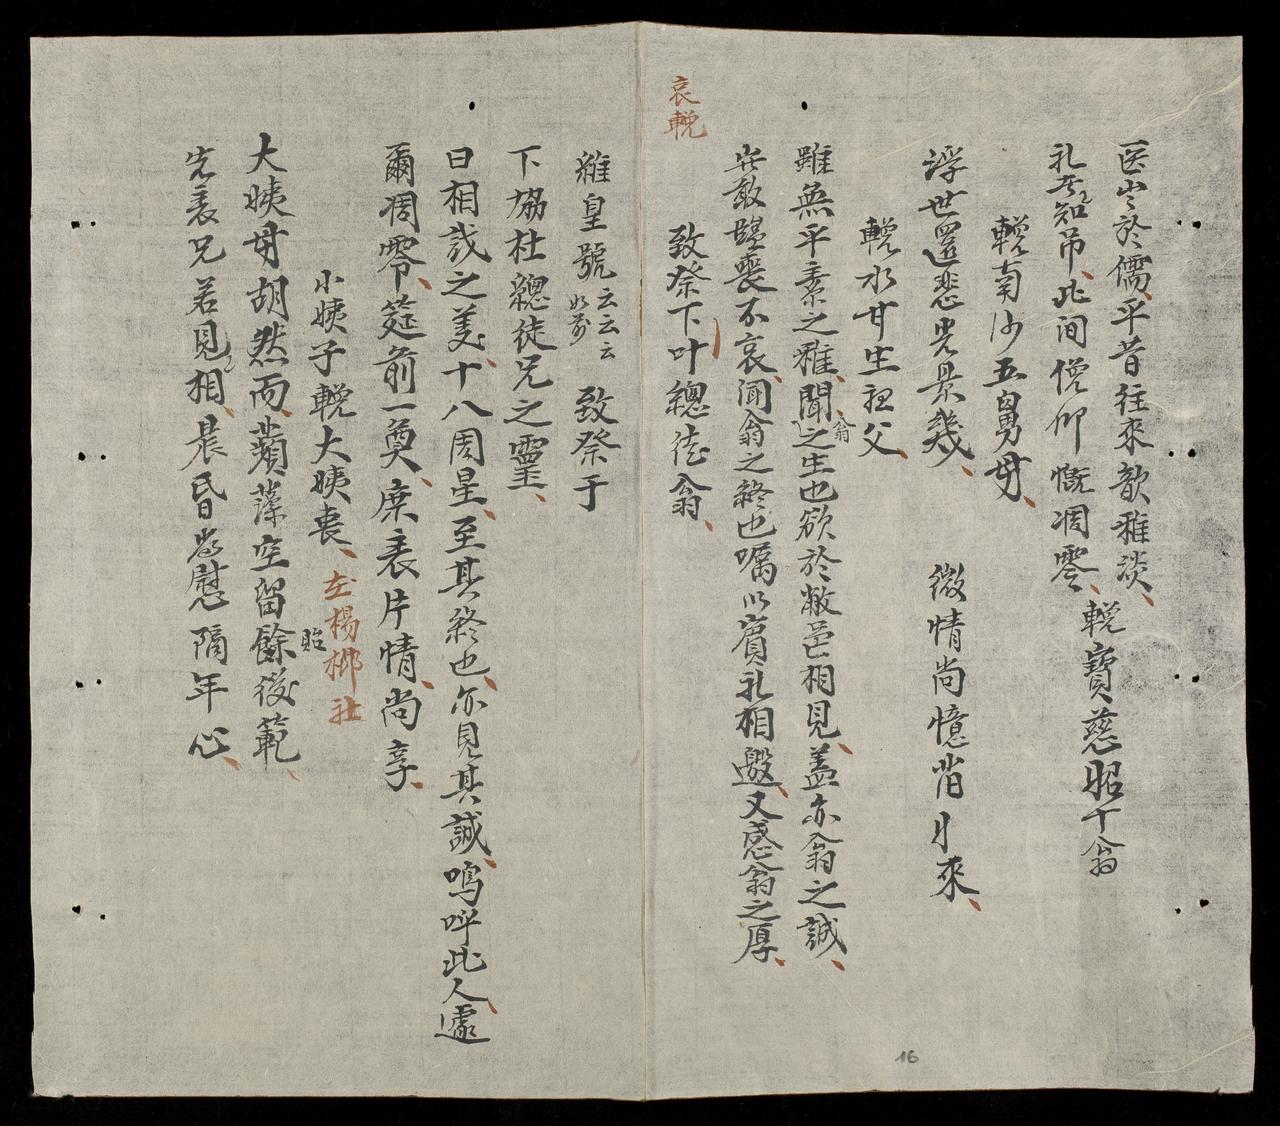 医出於儒、平昔往來歆雅淡、輓寶慈昭十翁
礼不知吊、此间僧仰慨凋零、
輓南沙五舅母、
浮世還悲光景幾、微情尚憶背月來、
輓水甘生祖父、
雖無平素之雅、聞翁之生也欲於敝邑相見、盖亦翁之誠、
米敢歸喪不哀、聞翁之終也嘱以賓礼相邀、又感翁之厚、
致祭下叶總徒翁、
哀輓
維皇號云云云如前 致祭于
下協社總徒兄之靈、
日相武之美、十八周星、至其終也、亦見其誠、嗚呼此人遽
爾凋零、筵前一奠、庶表片情、尚享、
小姨子輓大姨喪、左楊柳社
大姨母胡然而、蘋藻空留貽餘後範、
先表兄若見相、晨昏為慰隔年心、
16